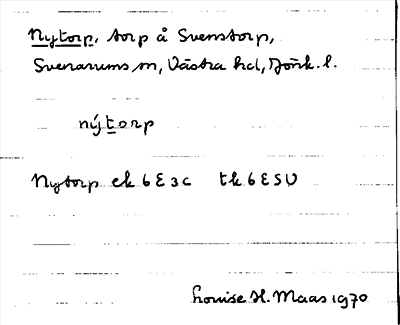 Nytorp, torp å Svenstorp,
Svenarums sn, Västra hd, Jönk. l.
nýtorp
Nytorp ek 6E3c tk 6E SV
Louise H. Maas 1970